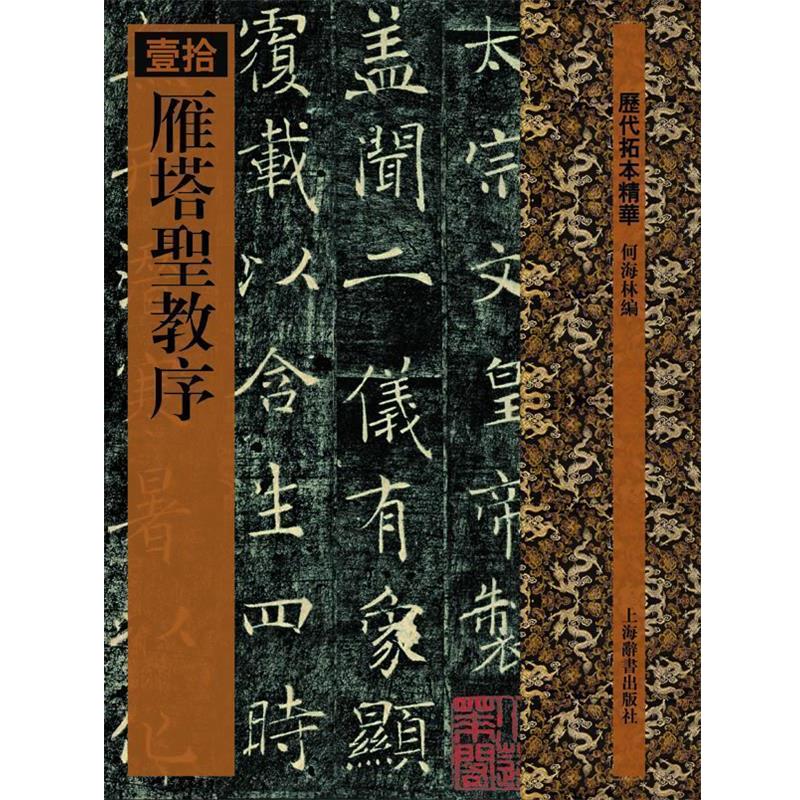 歷代拓本精華
何海林編
上海辭書出版社
太宗文皇帝製
盖聞二儀有象顯
覆載以含生四時
拾壹
雁塔聖教序